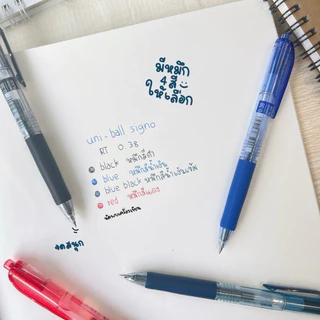 มีหมึก
4 สี
ให้เลือก
uni-ball signo
RT 0.38
black หมึกสีดำ
blue หมึกสีน้ำเงิน
blue black หมึกสีน้ำเงินเข้ม
red หมึกสีแดง
จดสนุก